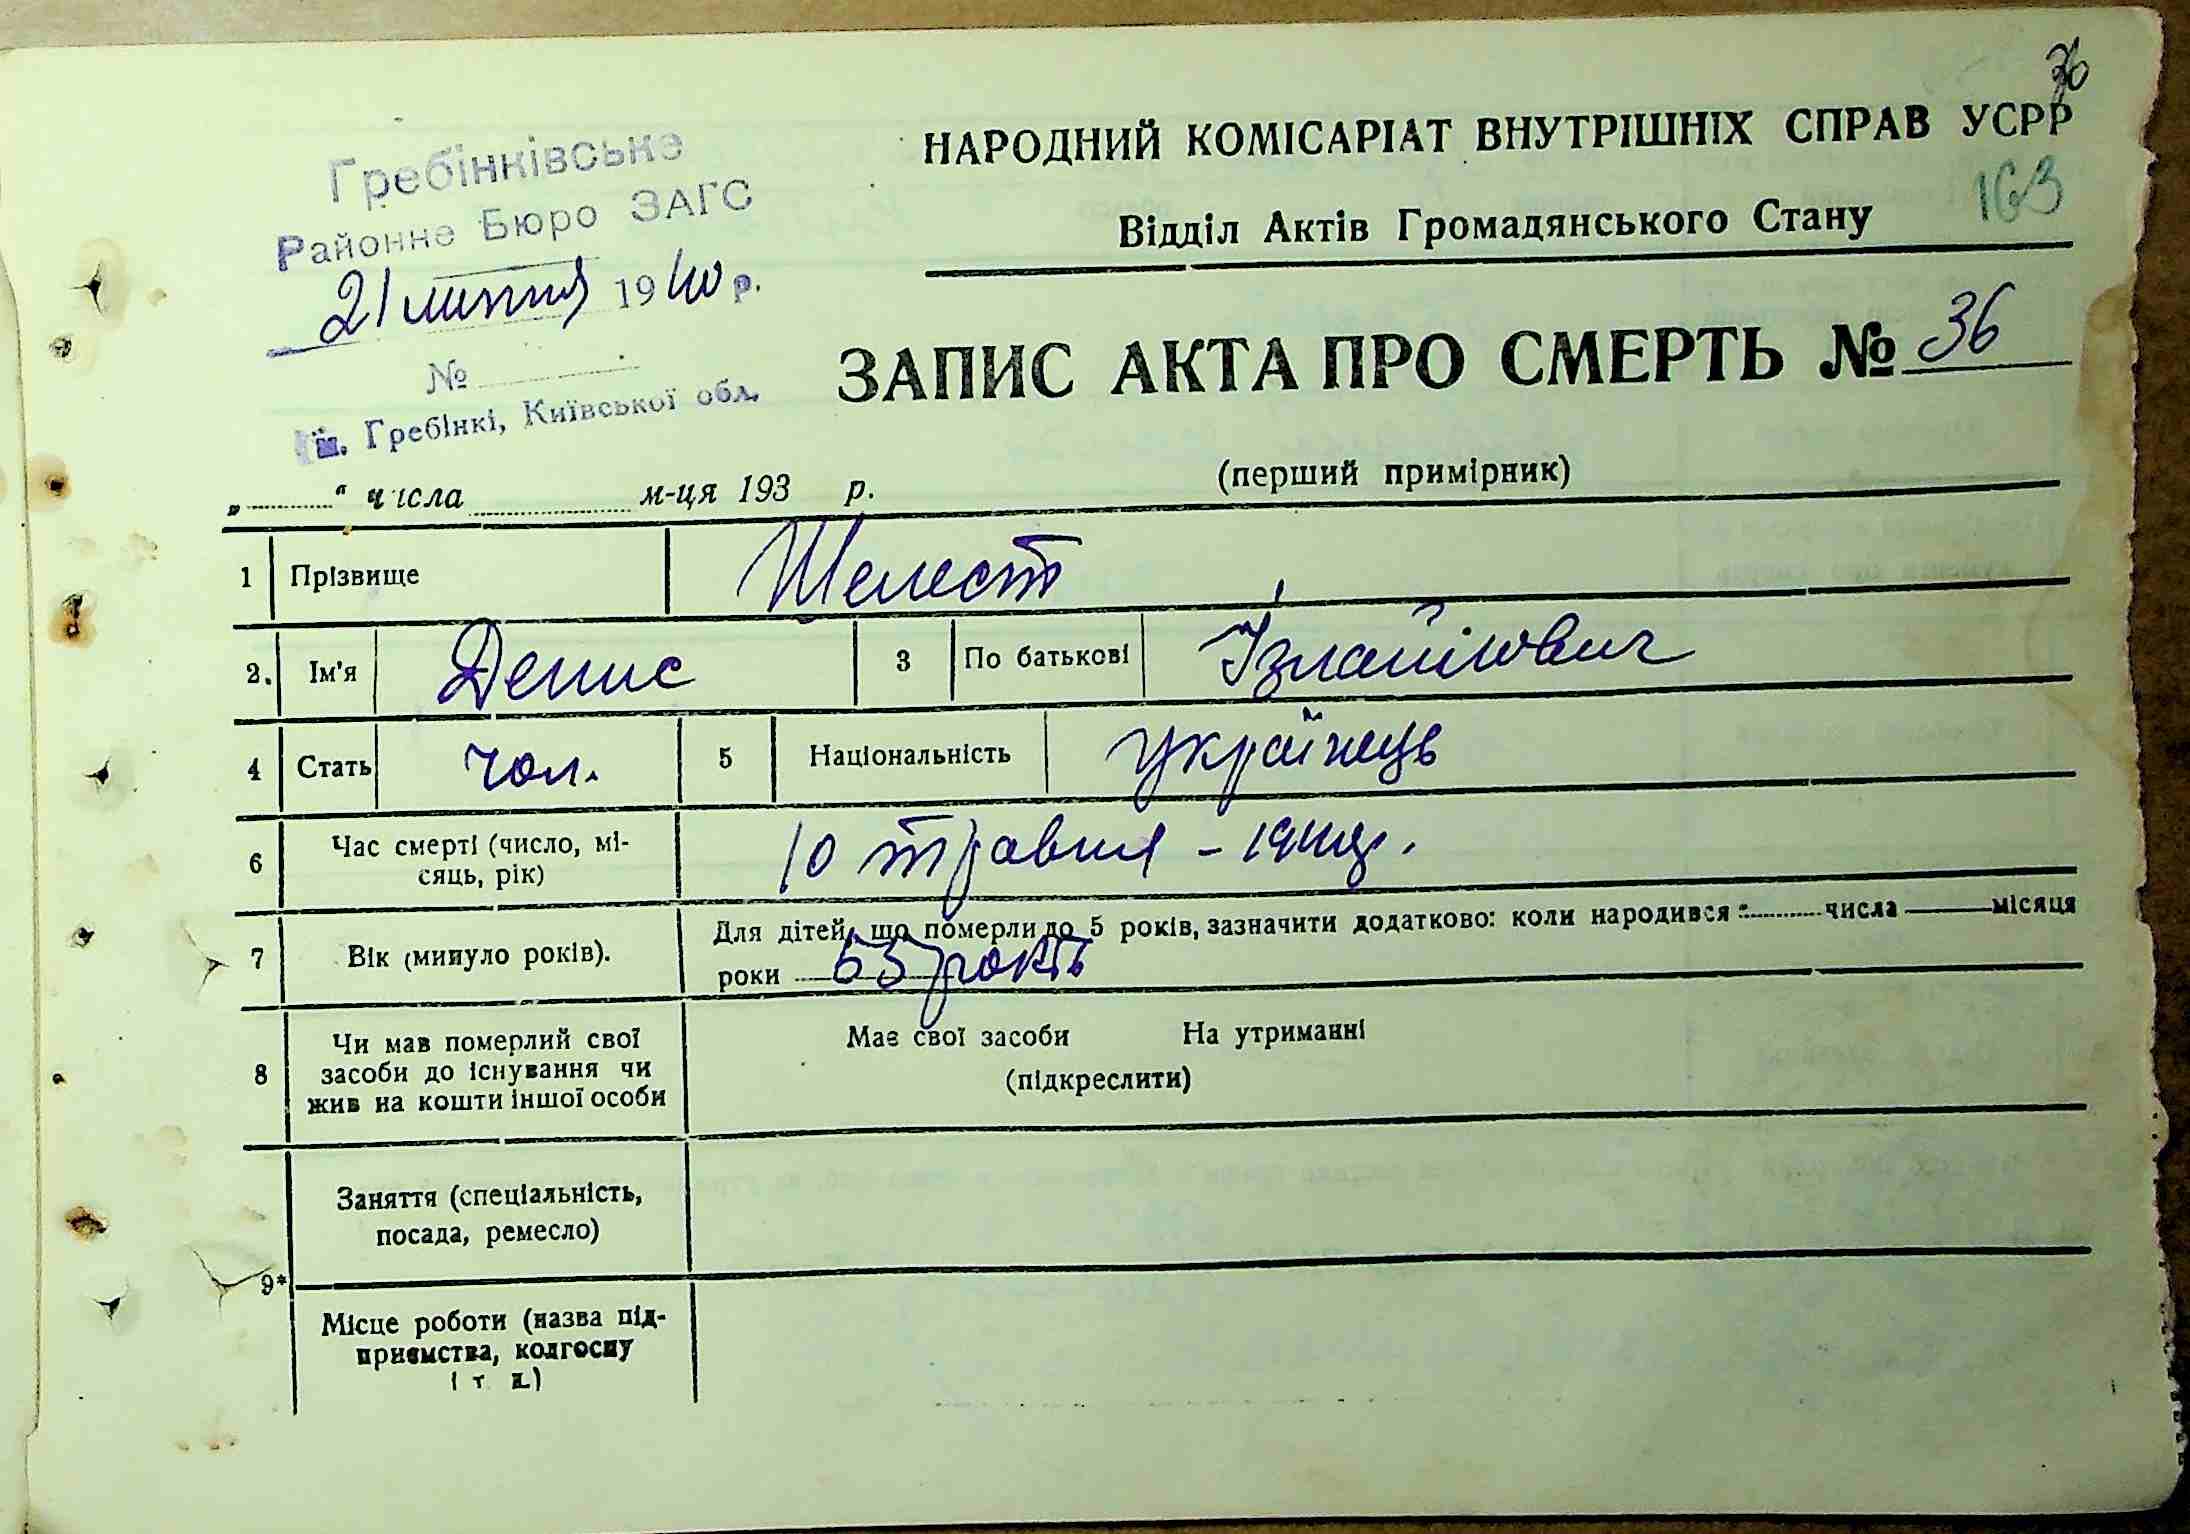 36
НАРОДНИЙ КОМІСАРІАТ ВНУТРІШНІХ СПРАВ УСРР
163
Відділ Актів Громадянського Стану
Гребінківське
Районне Бюро ЗАГС
21 липня 1940 р.
№
м. Гребінкі, Київської обл.
ЗАПИС АКТА ПРО СМЕРТЬ № 36
(перший примірник)
„ “ числа м-ця 193 р.
1 Прізвище Шелест
2. Ім'я Денис 3 По батькові Ізмайлович
4 Стать чол. 5 Національність Українець
6 Час смерті (число, мі-
сяць, рік) 10 травня –
7 Вік (минуло років). Для дітей, що померли до 5 років, зазначити додатково: коли народився числа місяця
роки 63 років
8 Чи мав померлий свої
засоби до існування чи
жив на кошти іншої особи
Має свої засоби На утриманні
(підкреслити)
Заняття (спеціальність,
посада, ремесло)
9*
Місце роботи (назва під-
приємства, колгоспу
і т. д.)